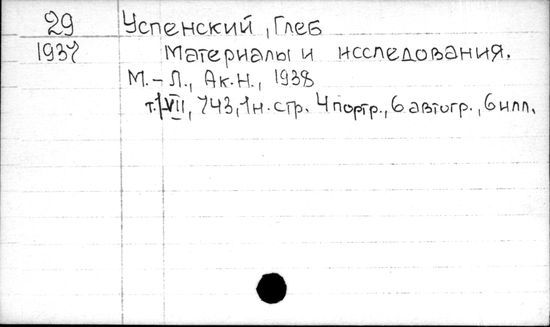 29 Успенский, Глеб
1937 Материалы и исследования.
М.-Л., Ак.Н., 1938
VII, 743, 1 н. стр. 4 портр., 6 автогр., 6 илл.